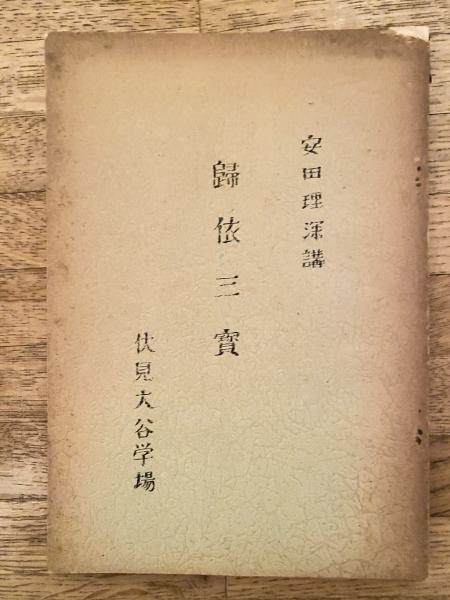 安田理深講
歸依三寶
伏見大谷学場